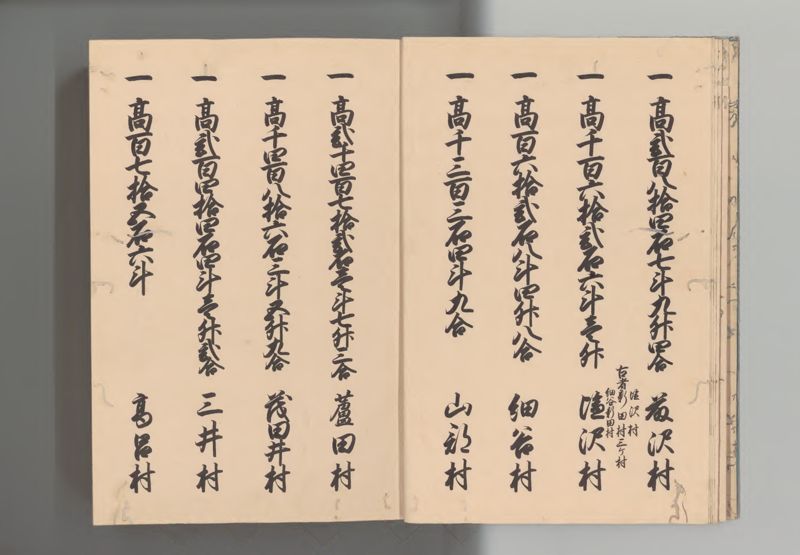 一 高弐百八拾四石七斗九升四合 藤沢村
塩沢村
古者新田村三ヶ村
細谷新田村
一 高千百六拾弐石六斗壱升 塩沢村
一 高百六拾弐石八斗四升八合 細谷村
一 高千三百三石四斗九合 山部村
一 高弐千四百七拾弐石壱斗七升三合 蘆田村
一 高千四百八拾六石三斗五升九合 茂田井村
一 高弐百四拾四石四斗壱升弐合 三井村
一 高百七拾五石六斗 高呂村